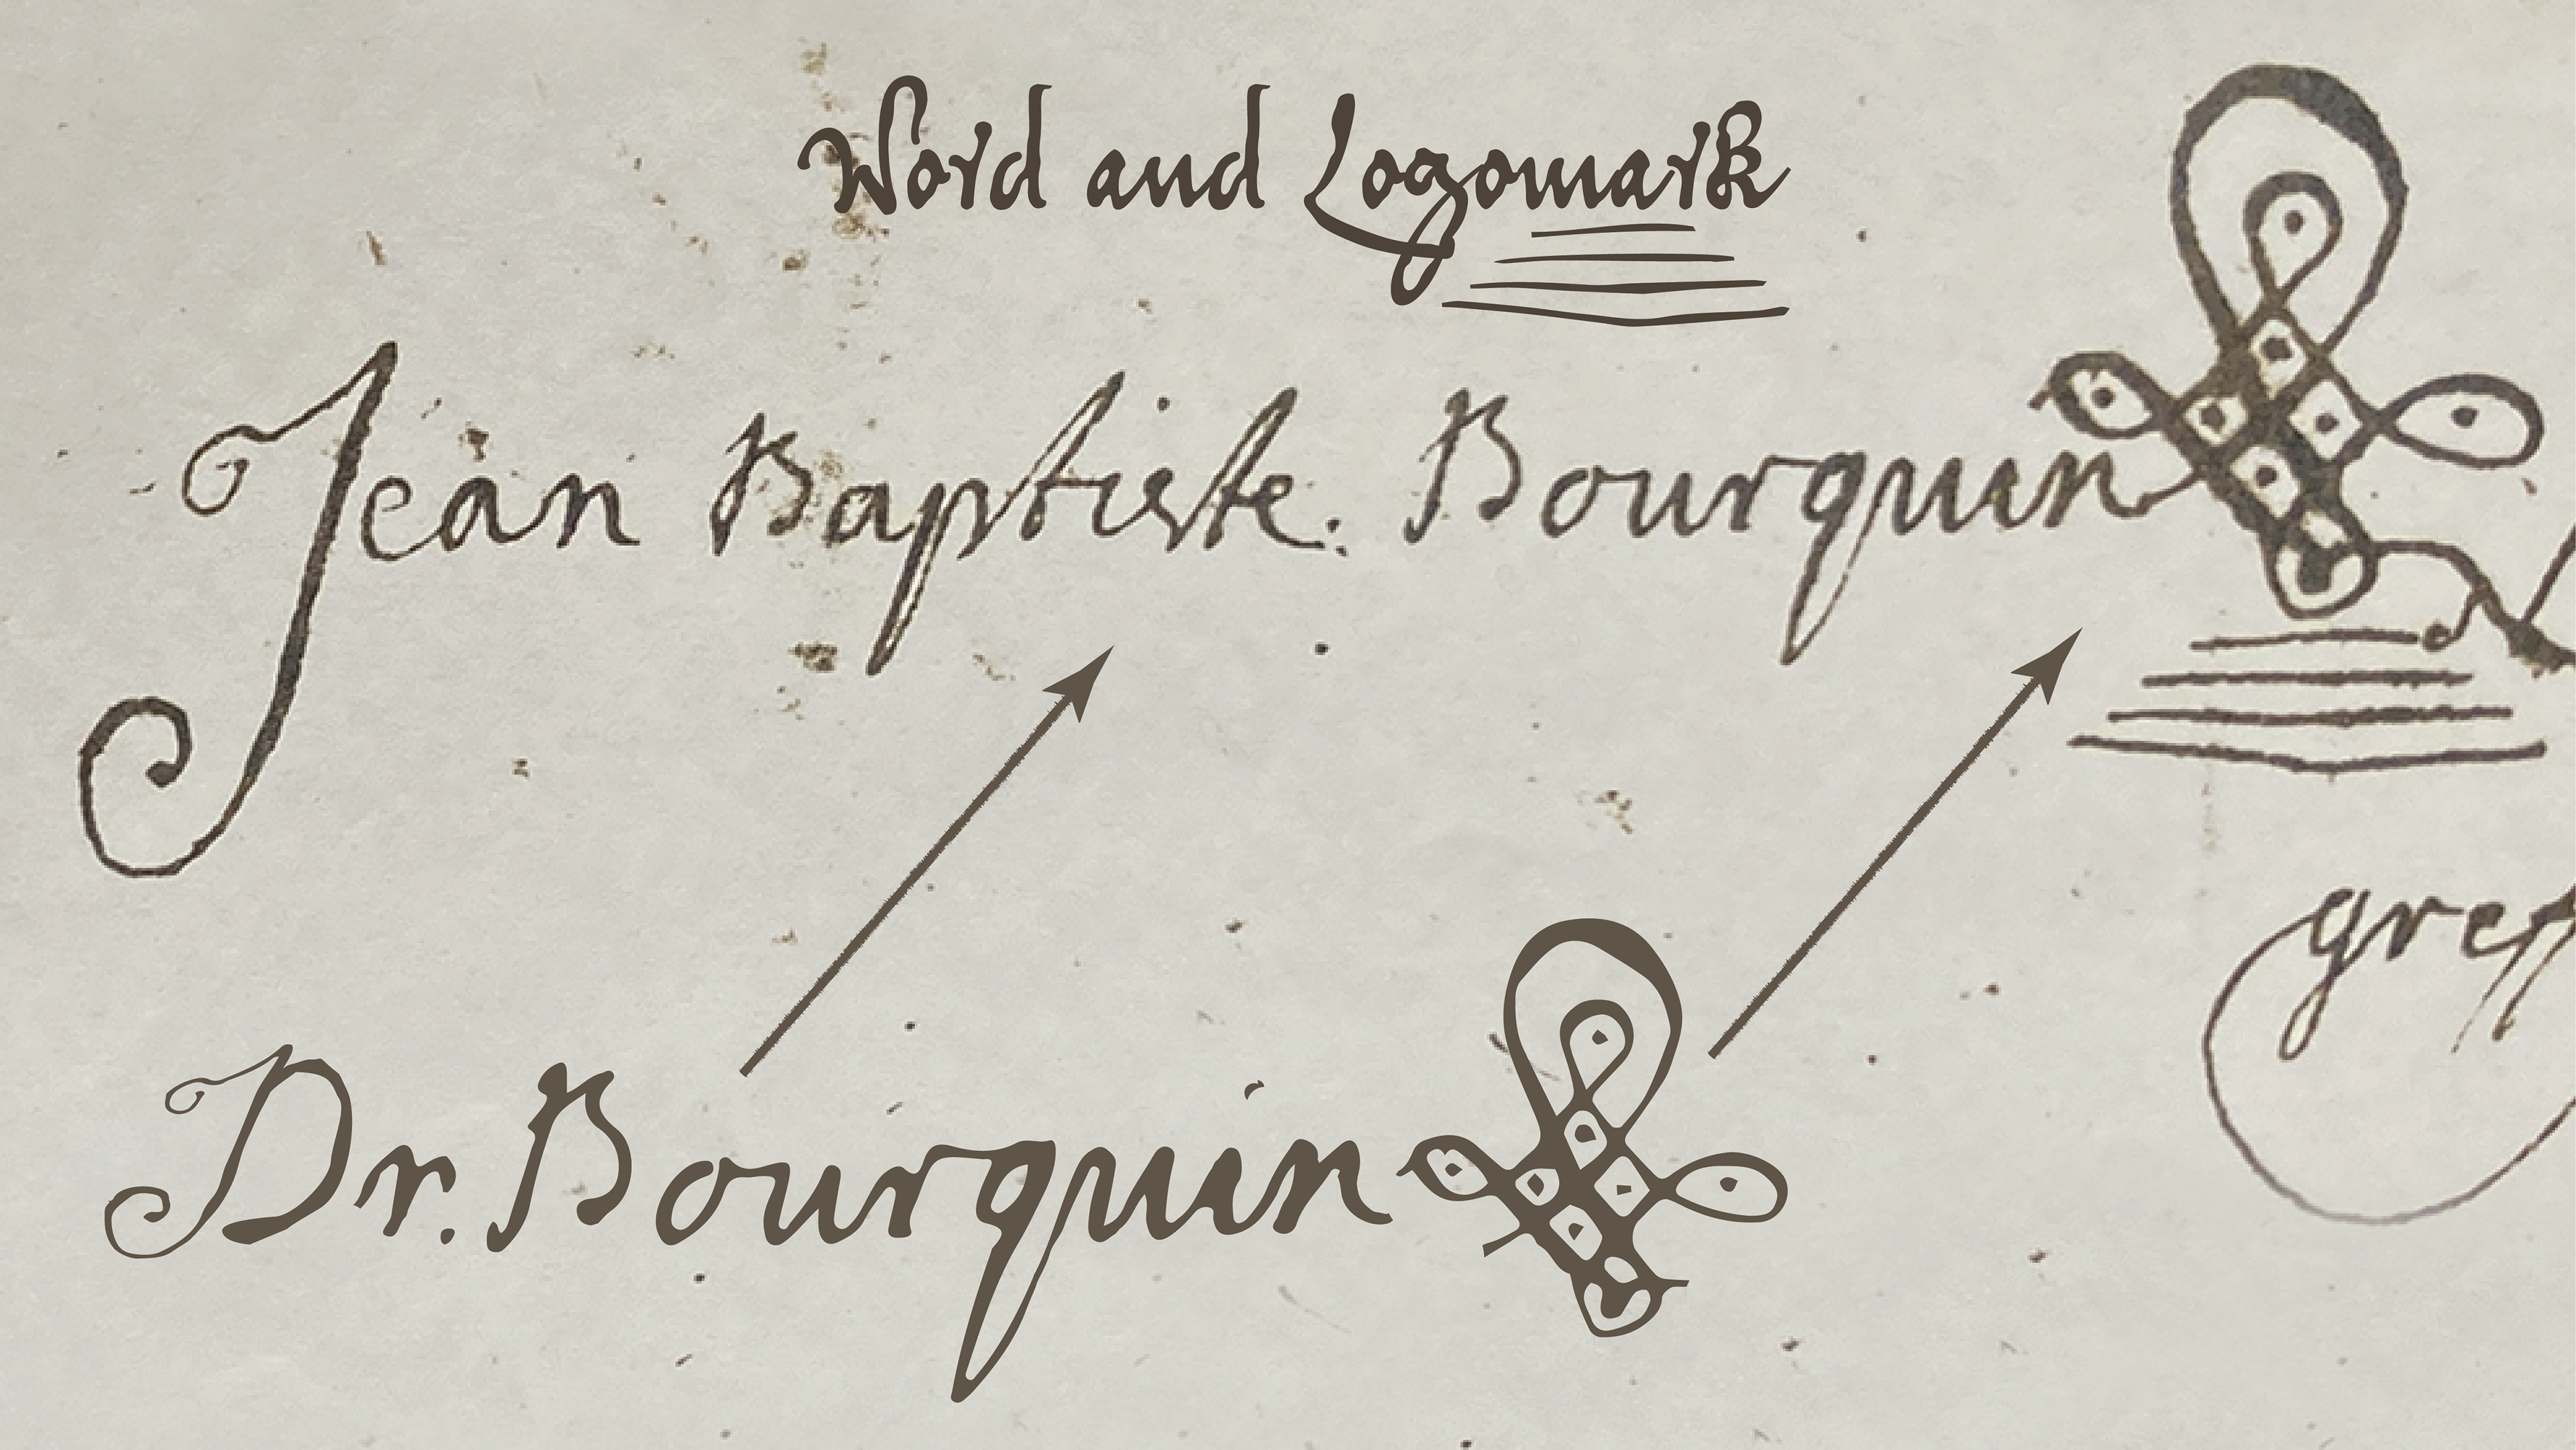 Word and Logomark
Jean Baptiste. Bourquin
greff
Dr. Bourquin